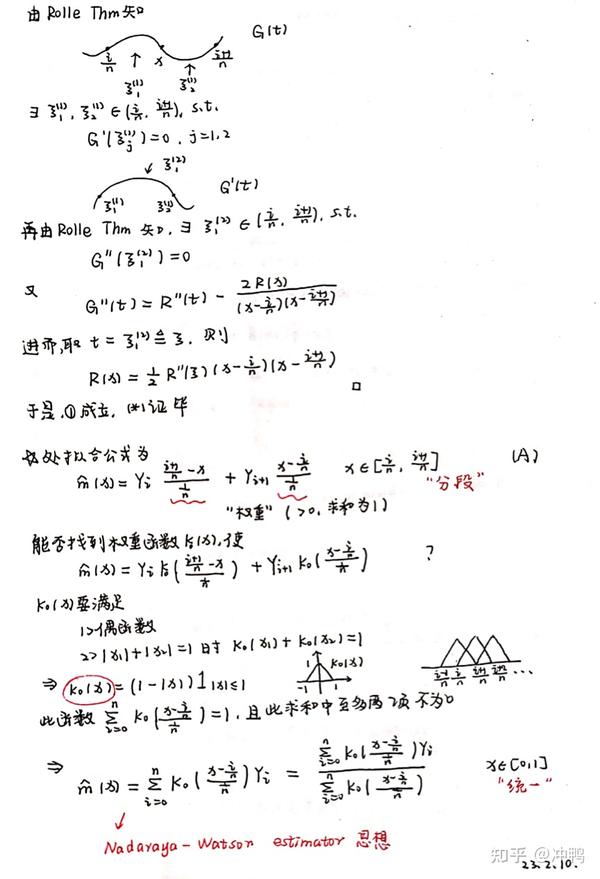 由Rolle Thm 知
G(t)
i/n x (i+1)/n
ξ₁⁽¹⁾ ξ₂⁽¹⁾
∃ ξ₁⁽¹⁾, ξ₂⁽¹⁾ ∈ (i/n, (i+1)/n), s.t.
G'(ξⱼ⁽¹⁾)=0, j=1,2
ξ₁⁽²⁾
G'(t)
ξ₁⁽¹⁾ ξ₂⁽¹⁾
再由Rolle Thm 知, ∃ ξ₁⁽²⁾ ∈ (i/n, (i+1)/n), s.t.
G''(ξ₁⁽²⁾)=0
又
G''(t) = R''(t) - 2R(x)/((x-i/n)(x-(i+1)/n))
进而,取 t = ξ₁⁽²⁾ ≜ ξ, 则
R(x) = 1/2 R''(ξ)(x-i/n)(x-(i+1)/n)
□
于是,①成立, (*)证毕
拟合公式为
m̂(x) = Yᵢ ((i+1)/n - x)/(1/n) + Yᵢ₊₁ (x - i/n)/(1/n) x∈[i/n, (i+1)/n] (A)
"分段"
"权重" (>0, 求和为1)
能否找到权重函数 k₀(x), 使
m̂(x) = Yᵢ k₀(((i+1)/n - x)/(1/n)) + Yᵢ₊₁ k₀((x - i/n)/(1/n)) ?
k₀(x)要满足
1>偶函数
2>|x₁|+|x₂|=1时 k₀(x₁)+k₀(x₂)=1
⇒ k₀(x) = (1-|x|)1|x|≤1
1 k₀(x)
-1 1
此函数 Σᵢ₌₀ⁿ k₀((x - i/n)/(1/n)) = 1, 且此求和中至多两项不为0
⇒
m̂(x) = Σᵢ₌₀ⁿ k₀((x - i/n)/(1/n)) Yᵢ = Σᵢ₌₀ⁿ k₀((x - i/n)/(1/n)) Yᵢ / Σᵢ₌₀ⁿ k₀((x - i/n)/(1/n)) x∈[0,1]
"统一"
Nadaraya-Watson estimator 思想
知乎 @冲鸭
23.2.10.